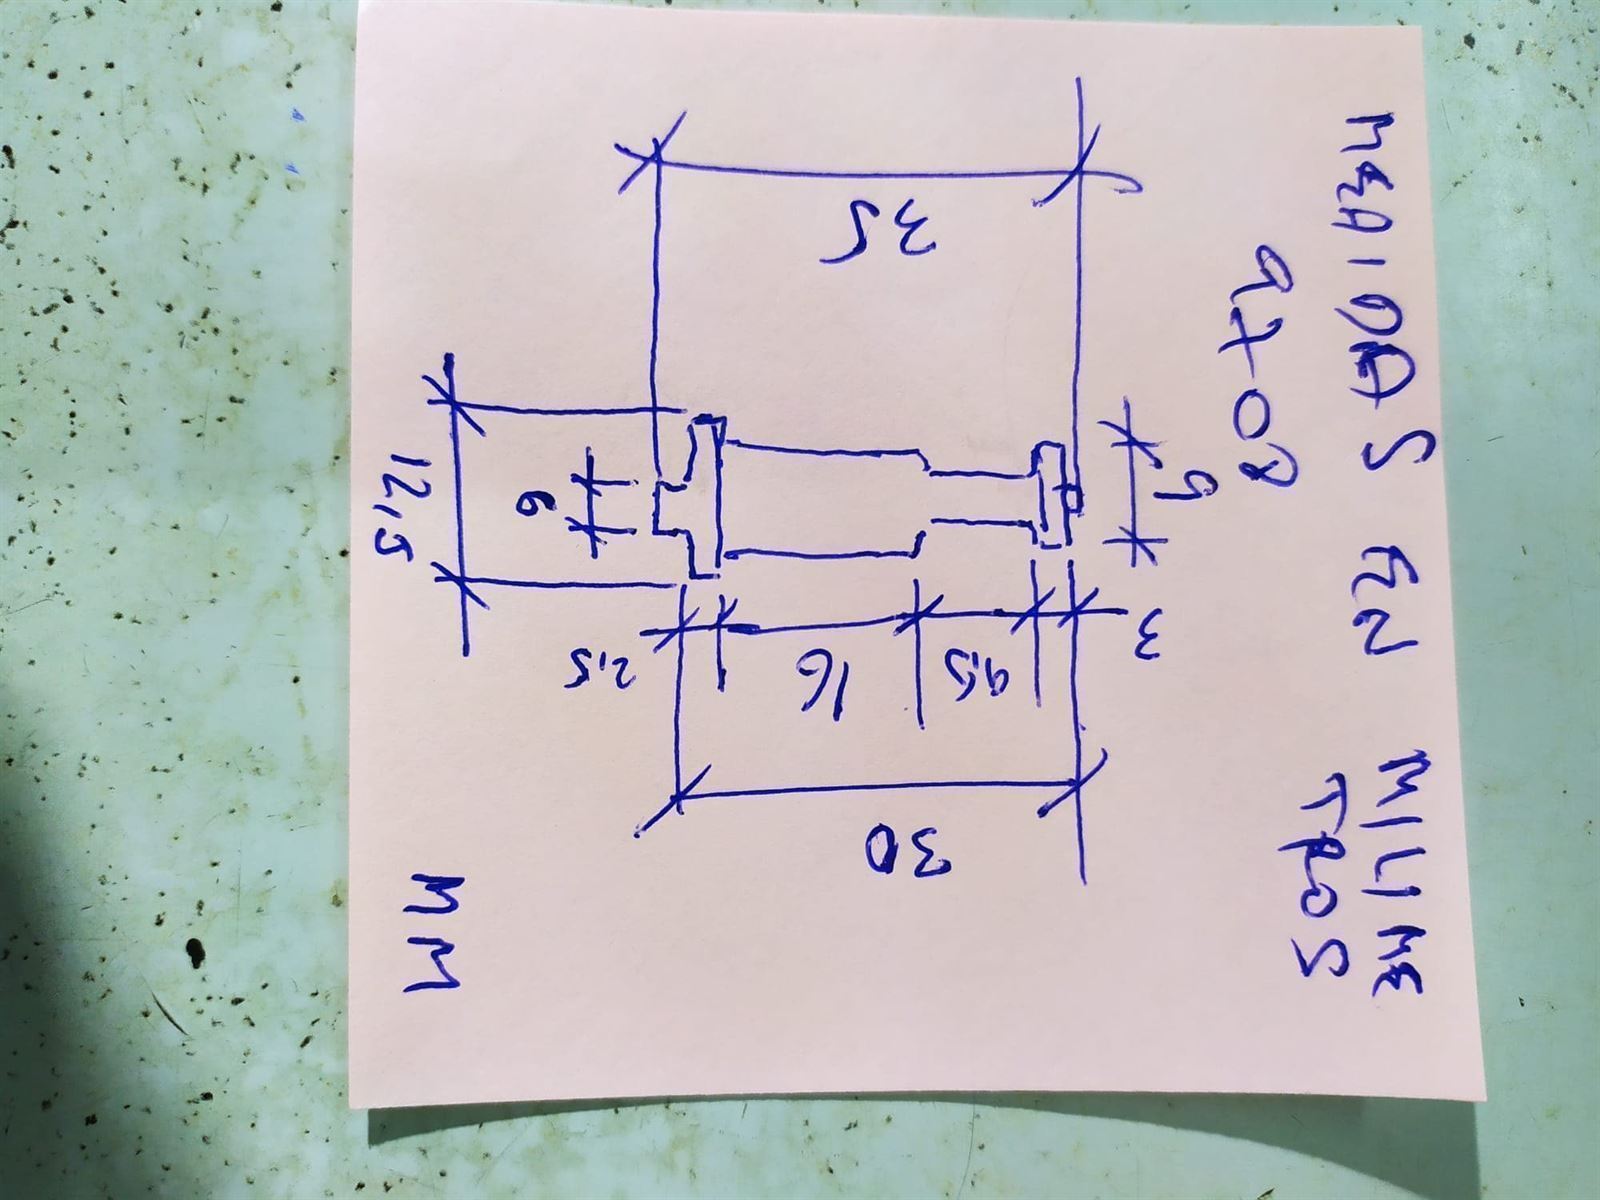 MEDIDAS EN MILIME
TROS
9
3
35
30
9,5
16
2,5
6
12,5
MM